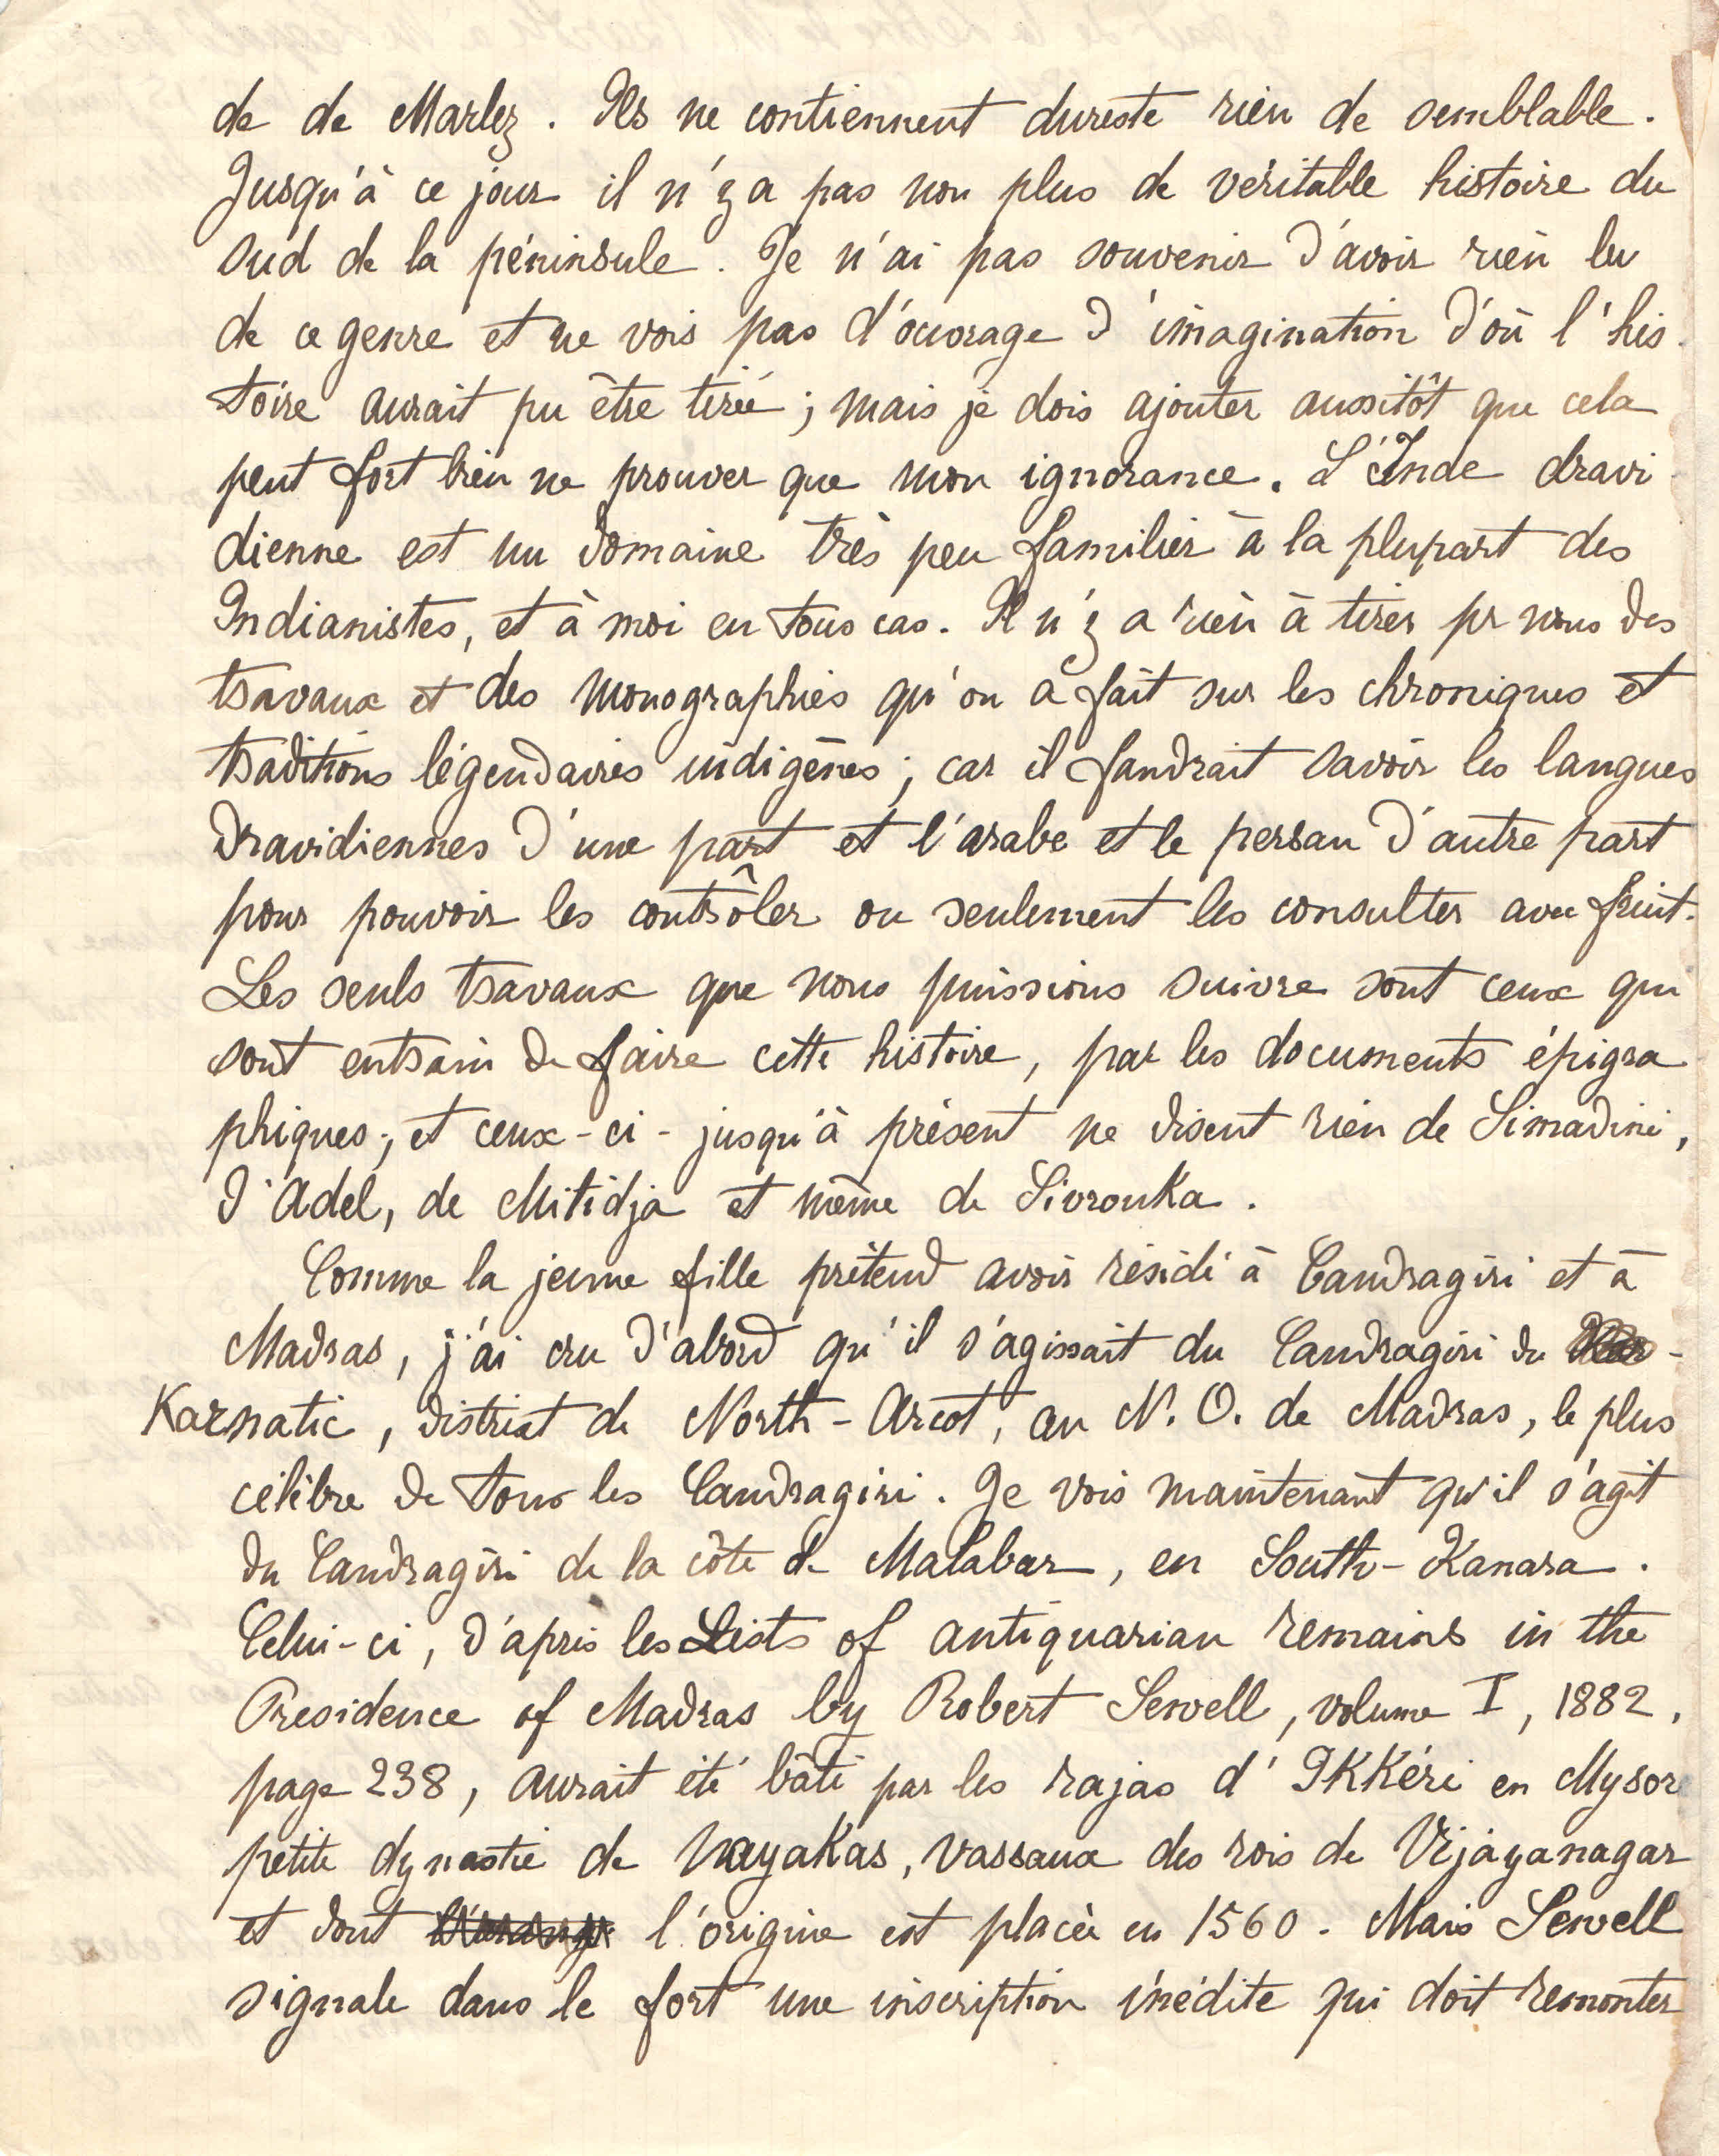 de de Marlez. Ils ne contiennent dureste rien de semblable.
Jusqu'à ce jour il n'y a pas non plus de véritable histoire du
Sud de la péninsule. Je n'ai pas souvenir d'avoir rien lu
de ce genre et ne vois pas d'ouvrage d'imagination d'où l'his-
toire aurait pu être tirée; mais je dois ajouter aussitôt que cela
peut fort bien ne prouver que mon ignorance. L'Inde dravi-
dienne est un domaine très peu familier à la plupart des
Indianistes, et à moi en tous cas. Il n'y a rien à tirer pr nous des
travaux et des monographies qu'on a fait sur les chroniques et
traditions légendaires indigènes; car il faudrait savoir les langues
dravidiennes d'une part et l'arabe et le persan d'autre part
pour pouvoir les contrôler ou seulement les consulter avec fruit.
Les seuls travaux que nous puissions suivre sont ceux qui
sont entrain de faire cette histoire, par les documents épigra
phiques; et ceux-ci - jusqu'à présent ne disent rien de Simadini,
d'Adel, de Mitidja et même de Sivrouka.
Comme la jeune fille prétend avoir résidé à Candragiri et à
Madras, j'ai cru d'abord qu'il s'agissait du Candragiri du
Karnatic, district de North-Arcot, au N. O. de Madras, le plus
célèbre de tous les Candragiri. Je vois maintenant qu'il s'agit
du Candragiri de la côte de Malabar, en South-Kanara.
Celui-ci, d'après les Lists of antiquarian remains in the
Presidence of Madras by Robert Sewell, volume I, 1882,
page 238, aurait été bâti par les rajas d'Ikkéri en Mysore
petite dynastie de Nayakas, vassaux des rois de Vijayanagar
et dont l'origine est placée en 1560. Mais Sewell
signale dans le fort une inscription inédite qui doit remonter